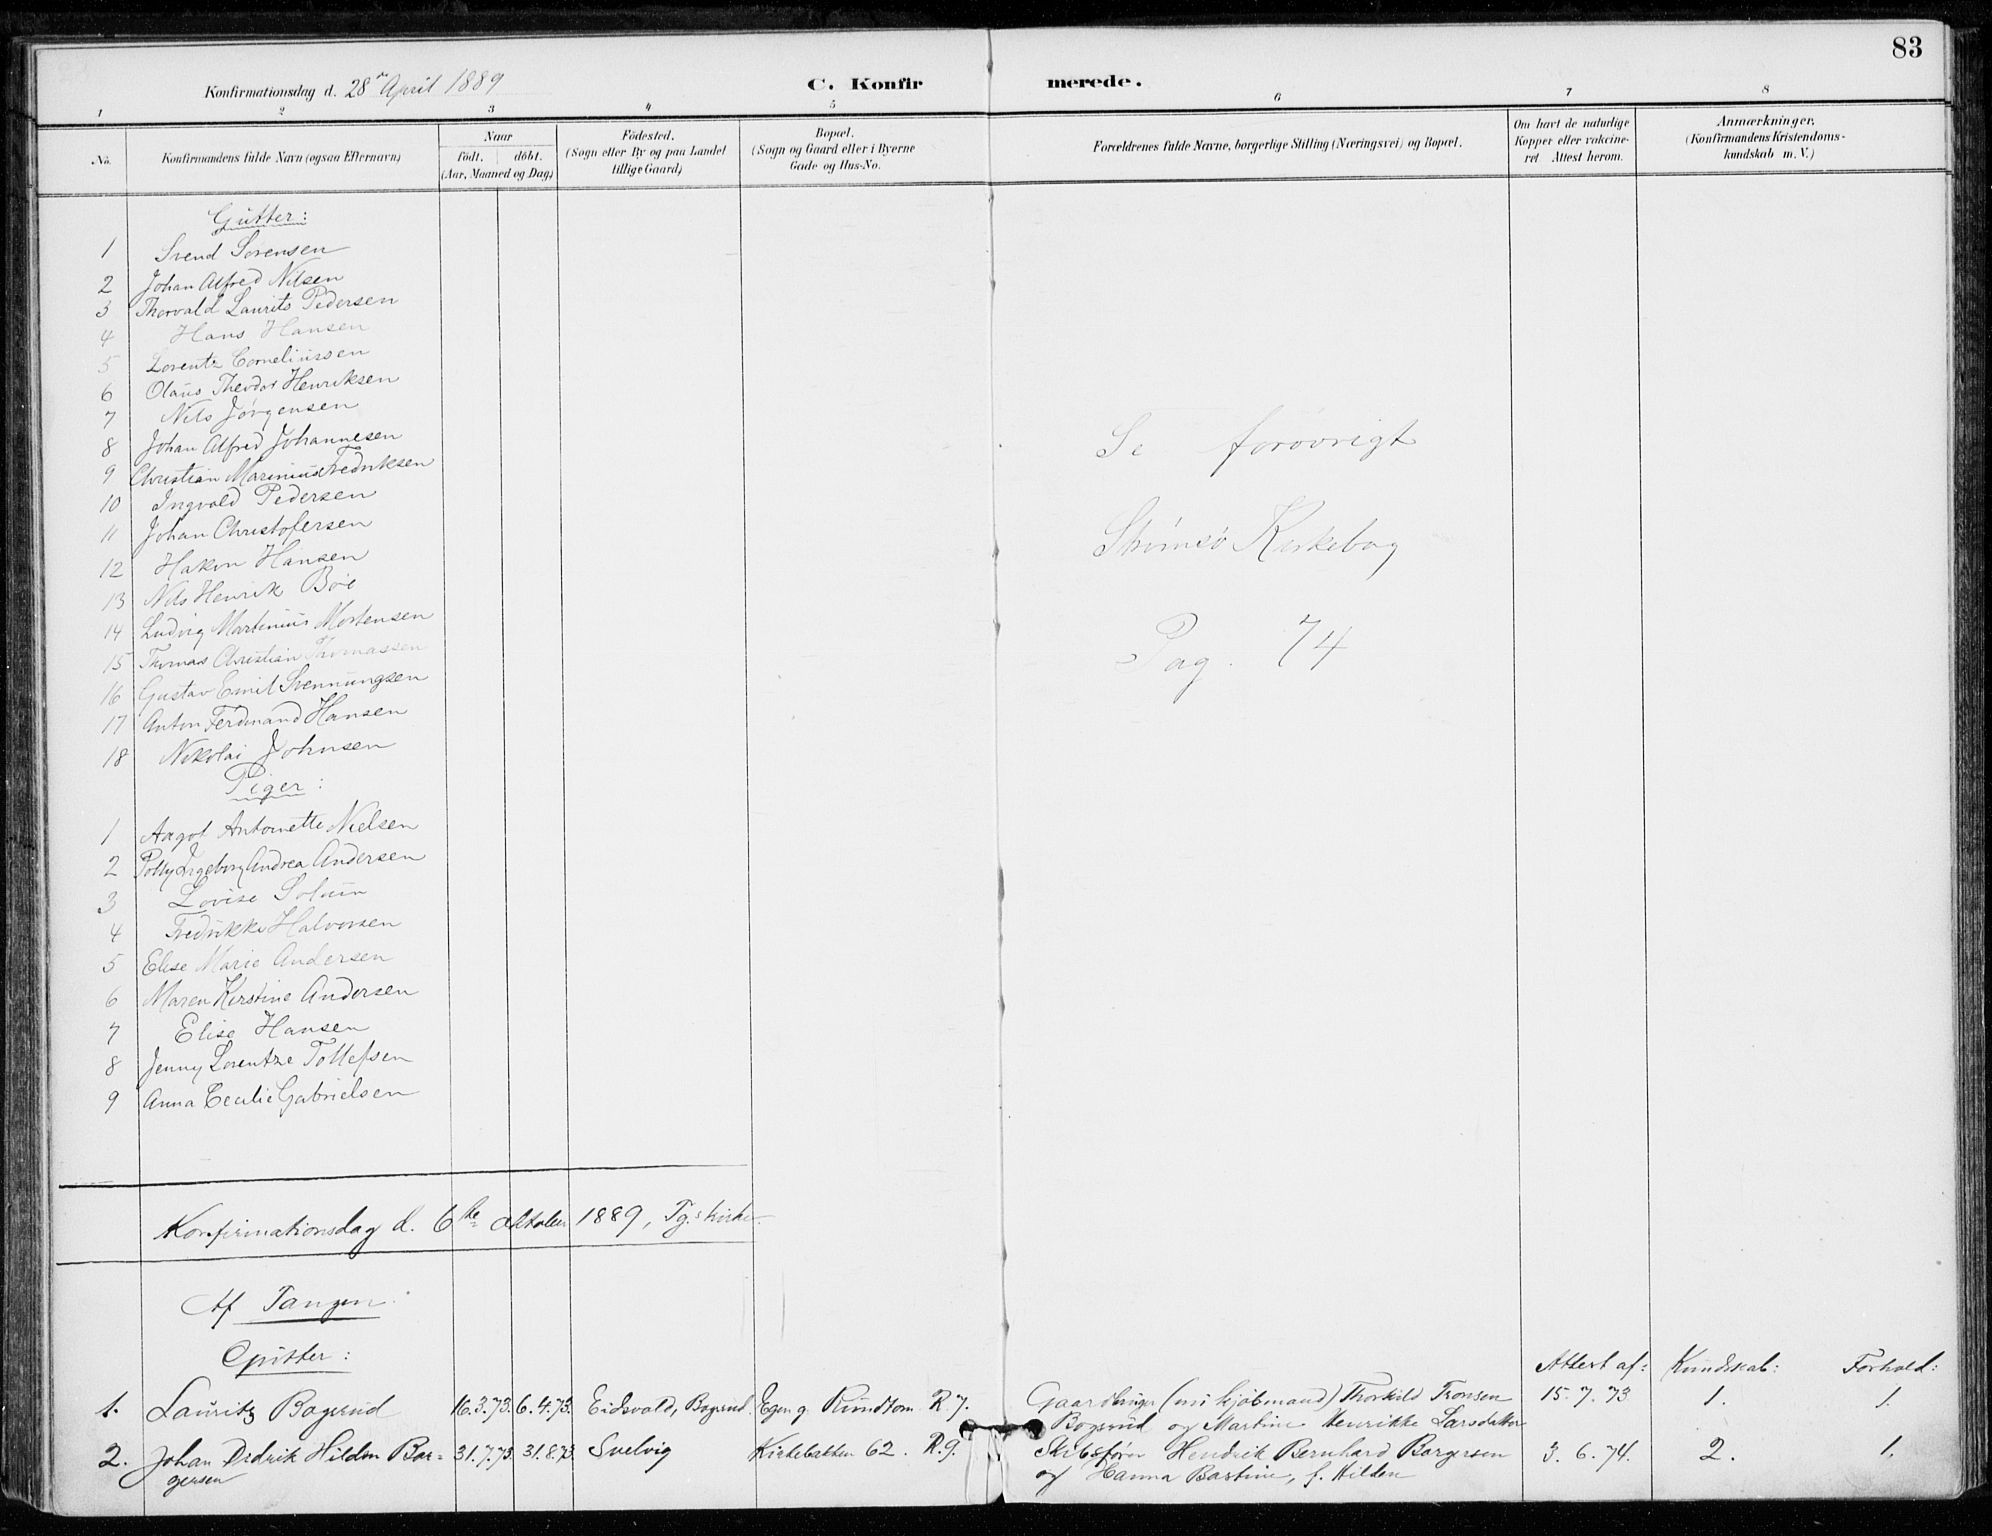 83
Konfirmationsdag d. 28de April 1889
C. Konfirmerede.
1 2 3 4 5 6 7 8
No.
Konfirmandens fulde Navn (ogsaa Efternavn)
Naar
födt. döbt.
(Aar, Maaned og Dag)
Födested.
(Sogn eller By og paa Landet
tillige Gaard)
Bopæl.
(Sogn og Gaard eller i Byerne
Gade og Hus-No.
Forældrenes fulde Navne, borgerlige Stilling (Næringsvei) og Bopæl.
Om havt de naturlige
Kopper eller vakcine-
ret. Attest herom.
Anmærkninger.
(Konfirmandens Kristendoms-
kundskab m. V.)
Gutter:
1 Svend Sørensen
2 Johan Alfred Nilsen
3 Thorvald Laurits Pedersen
4 Hans Hansen
5 Lorentz Corneliussen
6 Olaus Theodor Henriksen
7 Nils Jørgensen
8 Johan Alfred Johannesen
9 Christian Marinius Fredriksen
10 Ingvald Pedersen
11 Johan Christofersen
12 Hakon Hansen
13 Nils Henrik Boie
14 Ludvig Martinius Mortensen
15 Thomas Christian Thomassen
16 Gustav Emil Svennungsen
17 Anton Ferdinand Hansen
18 Nikolai Johnsen
Se forøvrigt
Strømsø Kirkebog
Pag. 74
Piger:
1 Aagot Antoinette Nielsen
2 Polly Ingeborg Andrea Andersen
3 Lovise Solum
4 Fredrikke Halvorsen
5 Elise Marie Andersen
6 Maren Kirstine Andersen
7 Elise Hansen
8 Jenny Lorentze Tollefsen
9 Anna Cecilie Gabrielsen
Konfirmationsdag d. 6te oktober 1889, Tg.s kirke.
Af Tangen
Gutter:
Attest af: Kundskab: Forhold:
1. Lauritz Bogsrud 16.3.73. 6.4.73. Eidsvold, Bogsrud. Egen g. Rundtom R. 7. Gaardbruger (nu kjøbmand) Thorkild Tronsen 15.7.73 1. 1.
Bogsrud og Martine Henrikke Larsdatter
2. Johan Didrik Hilden Bor= 31.7.73. 31.8.73 Svelvig Kirkebakken 62. R. 9. Skibsfører Hendrik Bernhard Borgersen 3.6.74. 2. 1.
gersen og Hanna Bastine, f. Hilden